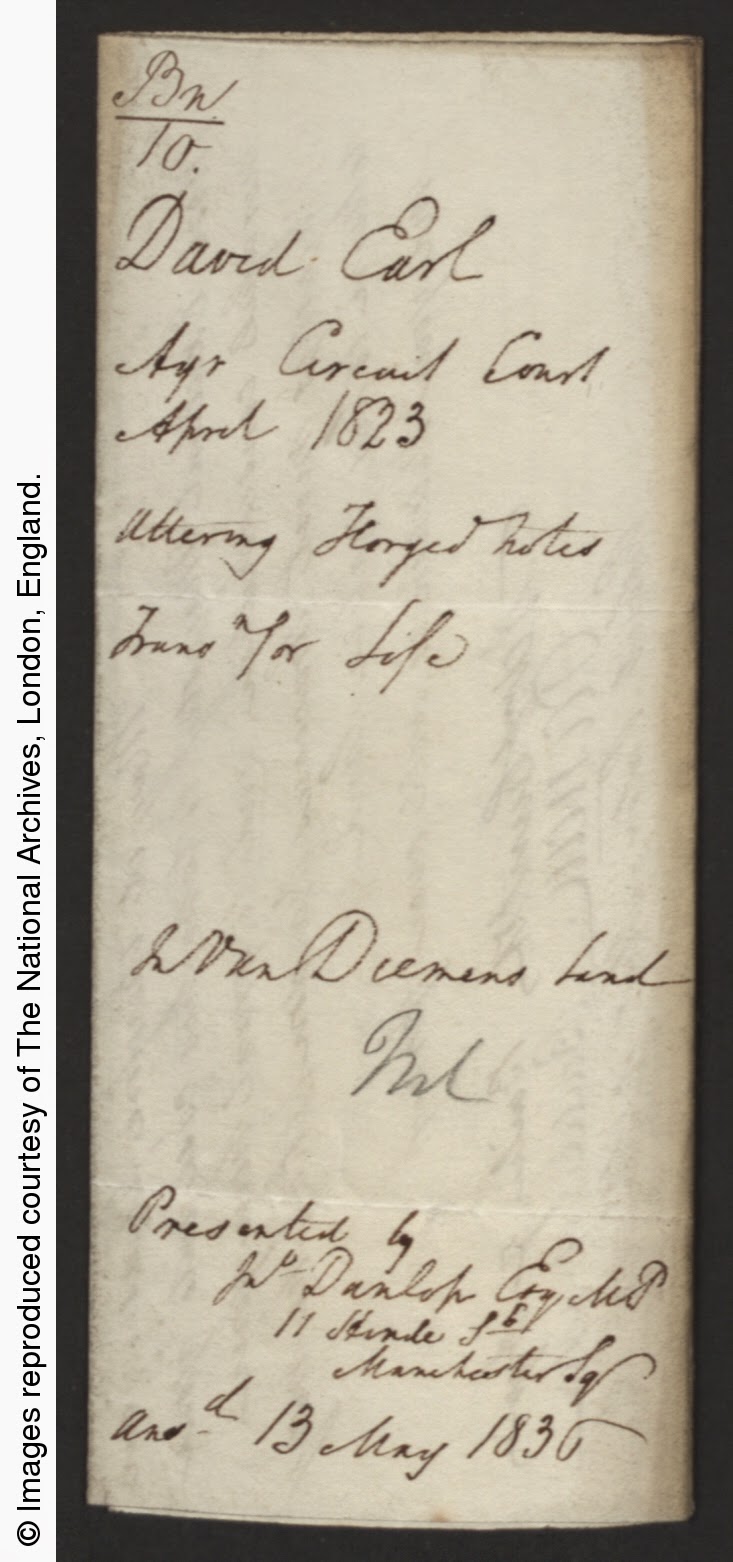 Bn
10.
David Earl
Ayr Circuit Court
April 1823
Uttering Forged Notes
Transn for Life
In Van Diemens Land
Presented by
Jno Dunlop Esq MP
11 Hinde St
Manchester Sq
Ansd 13 May 1836
© Images reproduced courtesy of The National Archives, London, England.